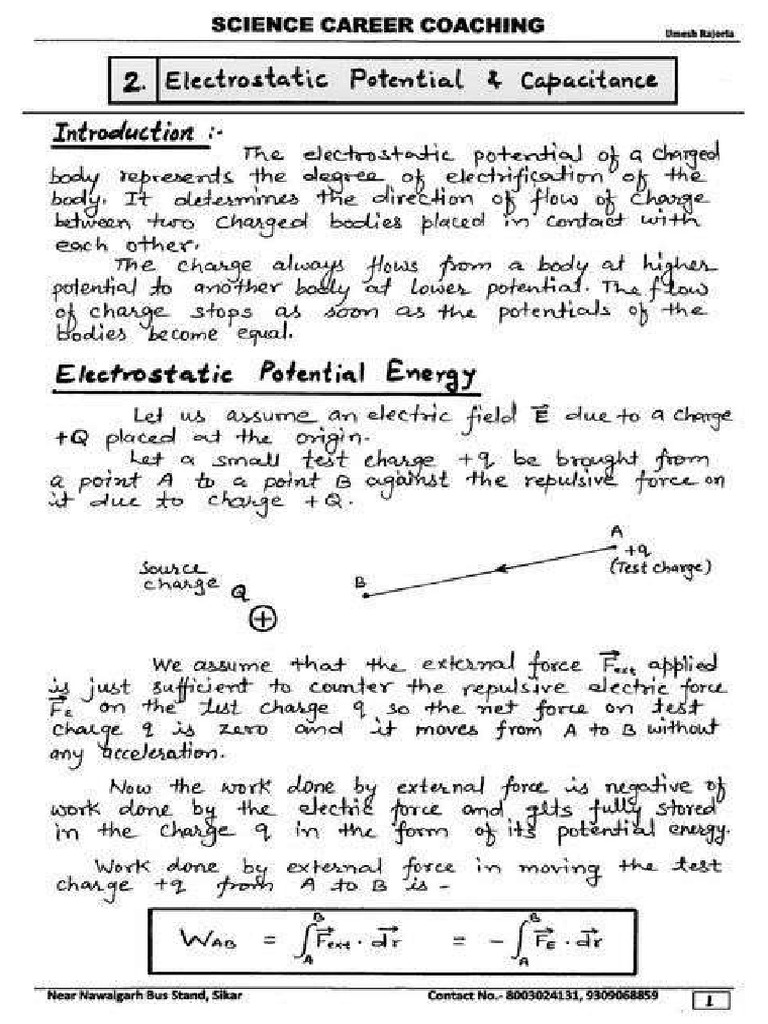 SCIENCE CAREER COACHING
Umesh Rajoria
2. Electrostatic Potential & Capacitance
Introduction :-
The electrostatic potential of a charged
body represents the degree of electrification of the
body. It determines the direction of flow of charge
between two charged bodies placed in contact with
each other.
The charge always flows from a body at higher
potential to another body at lower potential. The flow
of charge stops as soon as the potentials of the
bodies become equal.
Electrostatic Potential Energy
Let us assume an electric field E⃗ due to a charge
+Q placed at the origin.
Let a small test charge +q be brought from
a point A to a point B against the repulsive force on
it due to charge +Q.
A
+q
(Test charge)
B
Source
charge Q
+
We assume that the external force F⃗ext applied
is just sufficient to counter the repulsive electric force
F⃗E on the test charge q so the net force on test
charge q is zero and it moves from A to B without
any acceleration.
Now the work done by external force is negative of
work done by the electric force and gets fully stored
in the charge q in the form of its potential energy.
Work done by external force in moving the test
charge +q from A to B is -
W_AB = ∫_A^B F⃗ext · d⃗r = - ∫_A^B F⃗E · d⃗r
Near Nawalgarh Bus Stand, Sikar
Contact No.- 8003024131, 9309068859
1